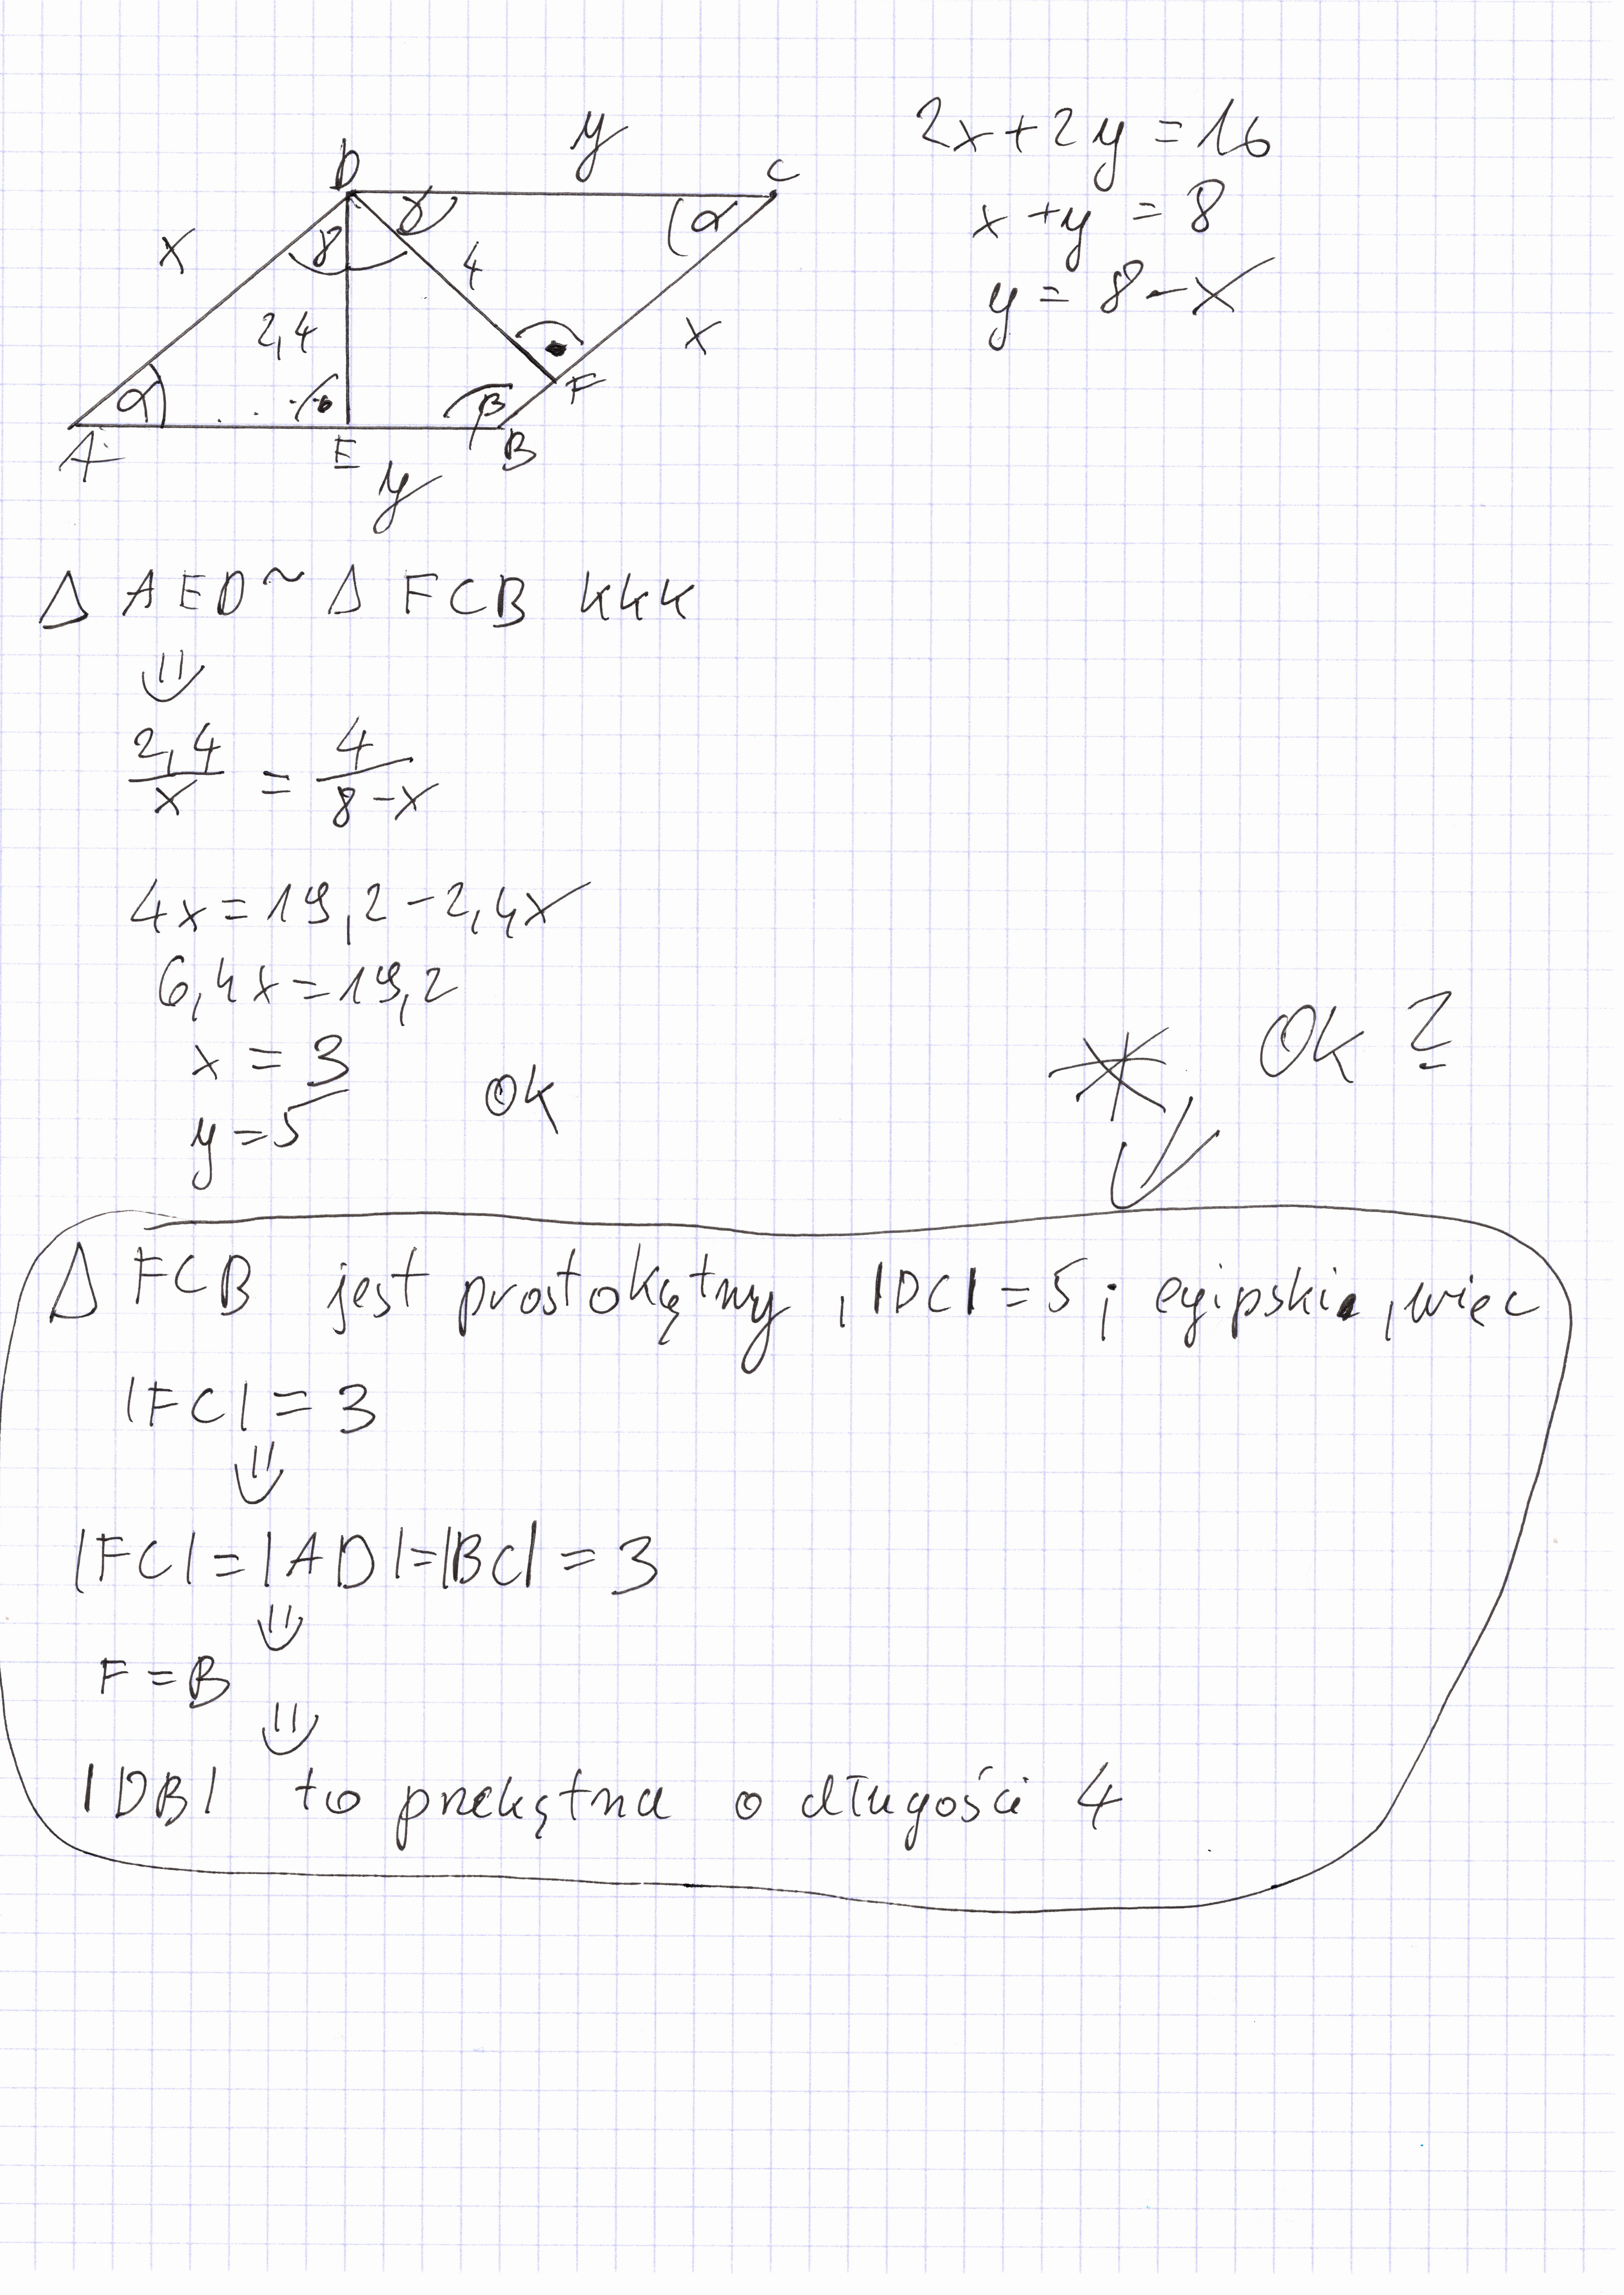 y
D
C
x
γ
γ
α
4
2,4
x
α
β
F
A
E
B
y
2x+2y=16
x+y=8
y=8-x
Δ AED ~ Δ FCB kkk
⇓
2,4/x = 4/8-x
4x=19,2-2,4x
6,4x=19,2
x=3
y=5 ok
* Ok ?
⇓
Δ FCB jest prostokątny, |DC|=5 i egipski, więc
|FC|=3
⇓
|FC|=|AD|=|BC|=3
⇓
F=B
⇓
|DB| to przekątna o długości 4